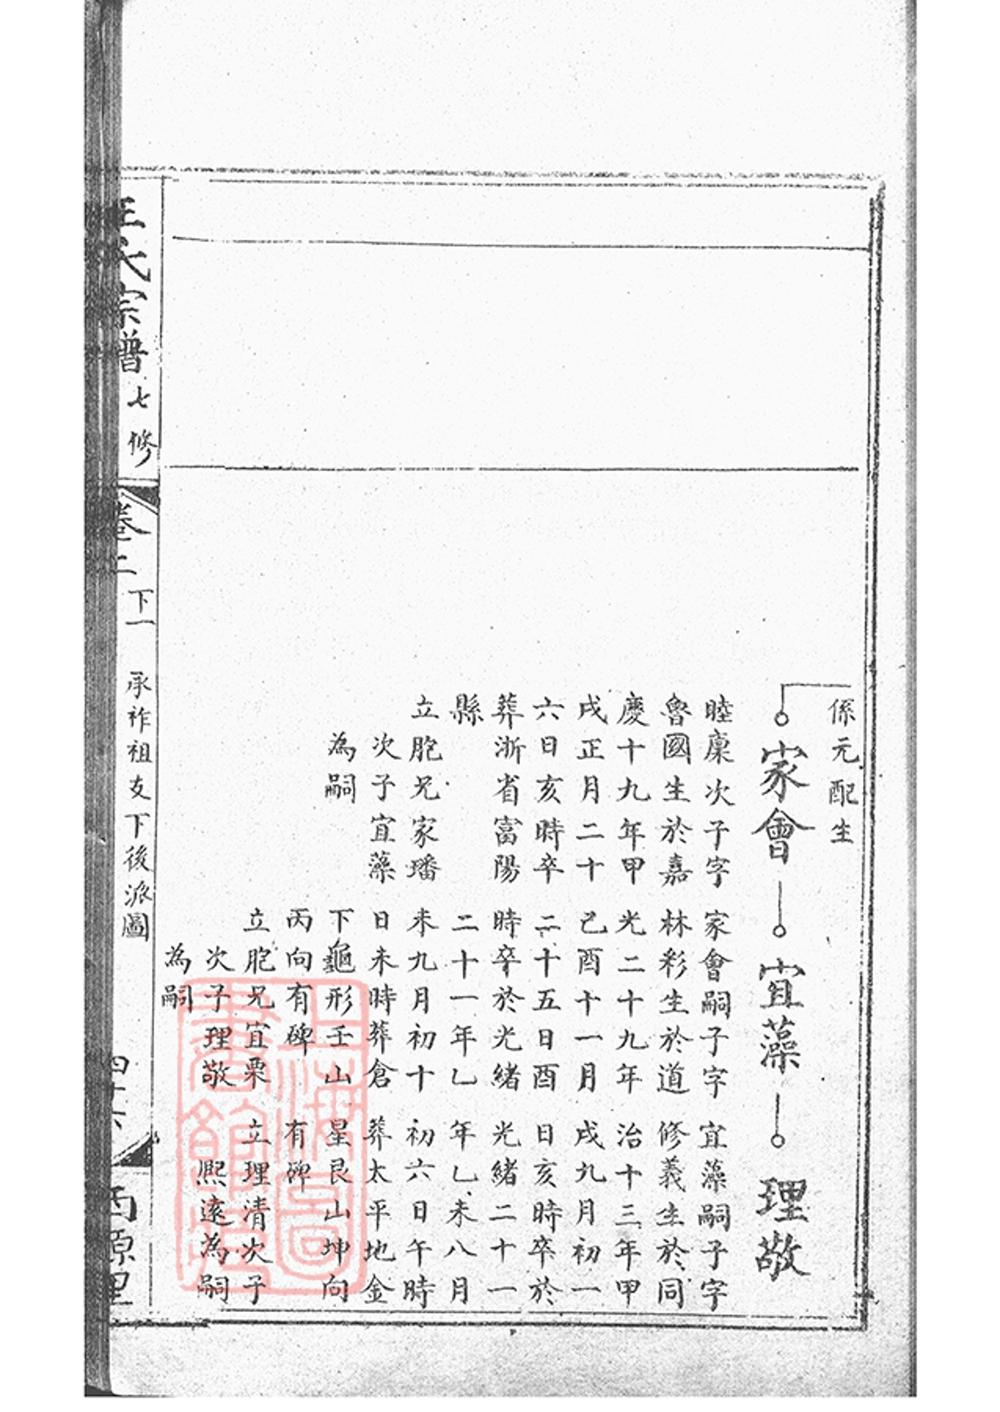 係元配生
家會 宜藻 理敬
睦稟次子字
魯國生於嘉
慶十九年甲
戌正月二十
六日亥時卒
葬浙省富陽
縣
立胞兄家璠
次子宜藻
為嗣
家會嗣子字
林彩生於道
光二十九年
己酉十一月
二十五日酉
時卒於光緒
二十一年乙
未九月初十
日未時葬倉
下龜形壬山
丙向有碑
立胞兄宜粟
次子理敬
為嗣
宜藻嗣子字
修義生於同
治十三年甲
戌九月初一
日亥時卒於
光緒二十一
年乙未八月
初六日午時
葬太平地金
星艮山坤向
有碑
立理清次子
熙遠為嗣
王氏宗譜 七修 卷二 下一 承祚祖支下後派圖 四十六 西源里
上海圖
書館藏